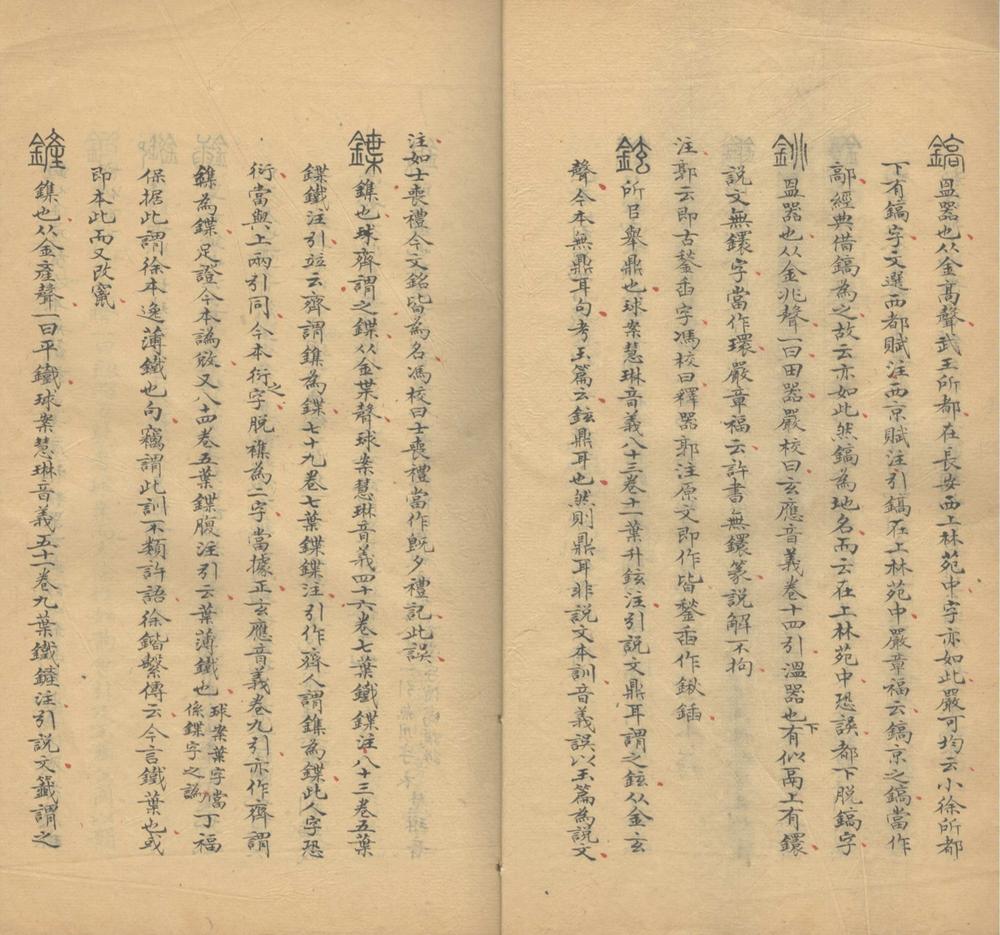 鎬 𥁕器也从金高聲武王所都在長安西上林苑中字亦如此嚴可均云小徐所都
下有鎬字文選西都賦注西京賦注引鎬在上林苑中嚴章福云鎬京之鎬當作
鄗經典借鎬為之故云亦如此然鎬為地名而云在上林苑中恐誤都下脫鎬字
銚 𥁕器也从金兆聲一曰田器嚴校曰玄應音義卷十四引溫器也下有似鬲上有鐶
說文無鐶字當作環嚴章福云許書無鐶篆說解不拘
注郭云即古鍫臿字馮校曰釋器郭注原文即作皆鍫臿作鍬鍤
鉉 所㠯舉鼎也球案慧琳音義八十三卷十一葉升鉉注引說文鼎耳謂之鉉从金玄
聲今本無鼎耳句考玉篇云鉉鼎耳也然則鼎耳非說文本訓音義誤以玉篇為說文
注如士喪禮今文銘皆為名馮校曰士喪禮當作旣夕禮記此誤
鍱 鏶也球齊謂之鍱从金枼聲球案慧琳音義四十六卷七葉鐵鍱注八十三卷五葉
鍱鐵注引竝云齊謂鏶為鍱七十九卷七葉鍱鍱注引作齊人謂鏶為鍱此人字恐
衍當與上兩引同今本衍之字脫鏶為二字當據正玄應音義卷九引亦作齊謂
鏶為鍱足證今本譌敓又八十四卷五葉鍱腹注引云葉薄鐵也球案葉字當係鍱字之譌丁福
保据此謂徐本逸薄鐵也句竊謂此訓不類許語徐鍇繫傳云今言鐵葉也或
即本此而又改竄
鏟 鏶也从金產聲一曰平鐵球案慧琳音義五十一卷九葉鐵鏟注引說文籤謂之